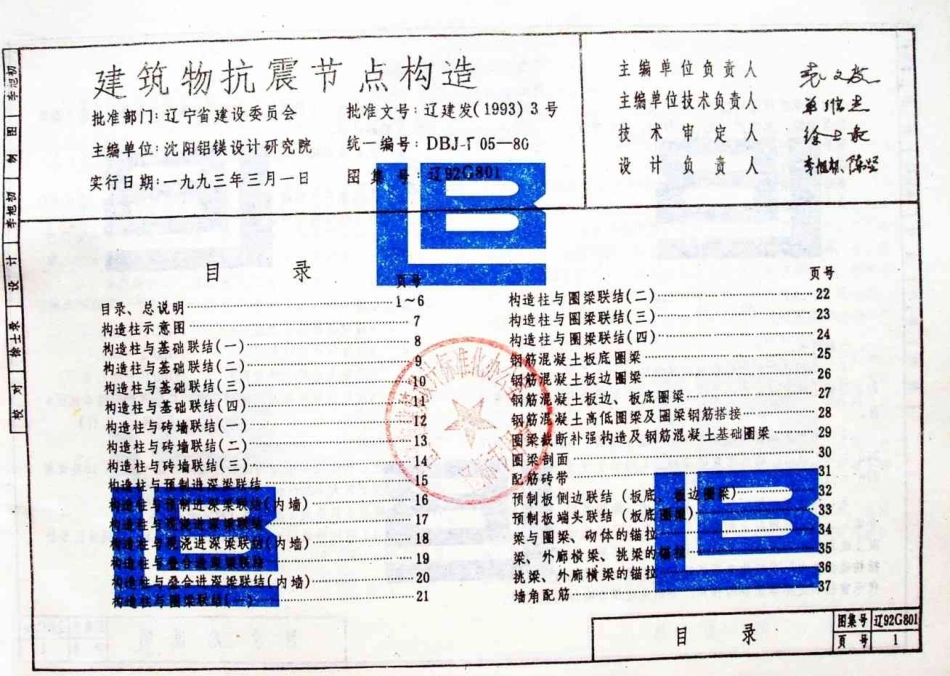 建筑物抗震节点构造
批准部门:辽宁省建设委员会
批准文号:辽建发(1993)3号
主编单位:沈阳铝镁设计研究院
统一编号:DBJT05—86
实行日期:一九九三年三月一日
图集号:辽92G801
主编单位负责人
主编单位技术负责人
技术审定人
设计负责人
目 录
页号
目录、总说明 1~6
构造柱示意图 7
构造柱与基础联结(一) 8
构造柱与基础联结(二) 9
构造柱与基础联结(三) 10
构造柱与基础联结(四) 11
构造柱与砖墙联结(一) 12
构造柱与砖墙联结(二) 13
构造柱与砖墙联结(三) 14
构造柱与预制进深梁联结 15
构造柱与预制进深梁联结(内墙) 16
构造柱与现浇进深梁联结 17
构造柱与现浇进深梁联结(内墙) 18
构造柱与叠合进深梁联结 19
构造柱与叠合进深梁联结(内墙) 20
构造柱与圈梁联结(一) 21
页号
构造柱与圈梁联结(二) 22
构造柱与圈梁联结(三) 23
构造柱与圈梁联结(四) 24
钢筋混凝土板底圈梁 25
钢筋混凝土板边圈梁 26
钢筋混凝土板边、板底圈梁 27
钢筋混凝土高低圈梁及圈梁钢筋搭接 28
圈梁截断补强构造及钢筋混凝土基础圈梁 29
圈梁剖面 30
配筋砖带 31
预制板侧边联结(板底、板边圈梁) 32
预制板端头联结(板底圈梁) 33
梁与圈梁、砌体的锚拉 34
梁、外廊横梁、挑梁的锚拉 35
挑梁、外廊横梁的锚拉 36
墙角配筋 37
目 录
图集号 辽92G801
页号 1
制图 李旭初
设计 李旭初
校对 徐士录
LB
LB
LB